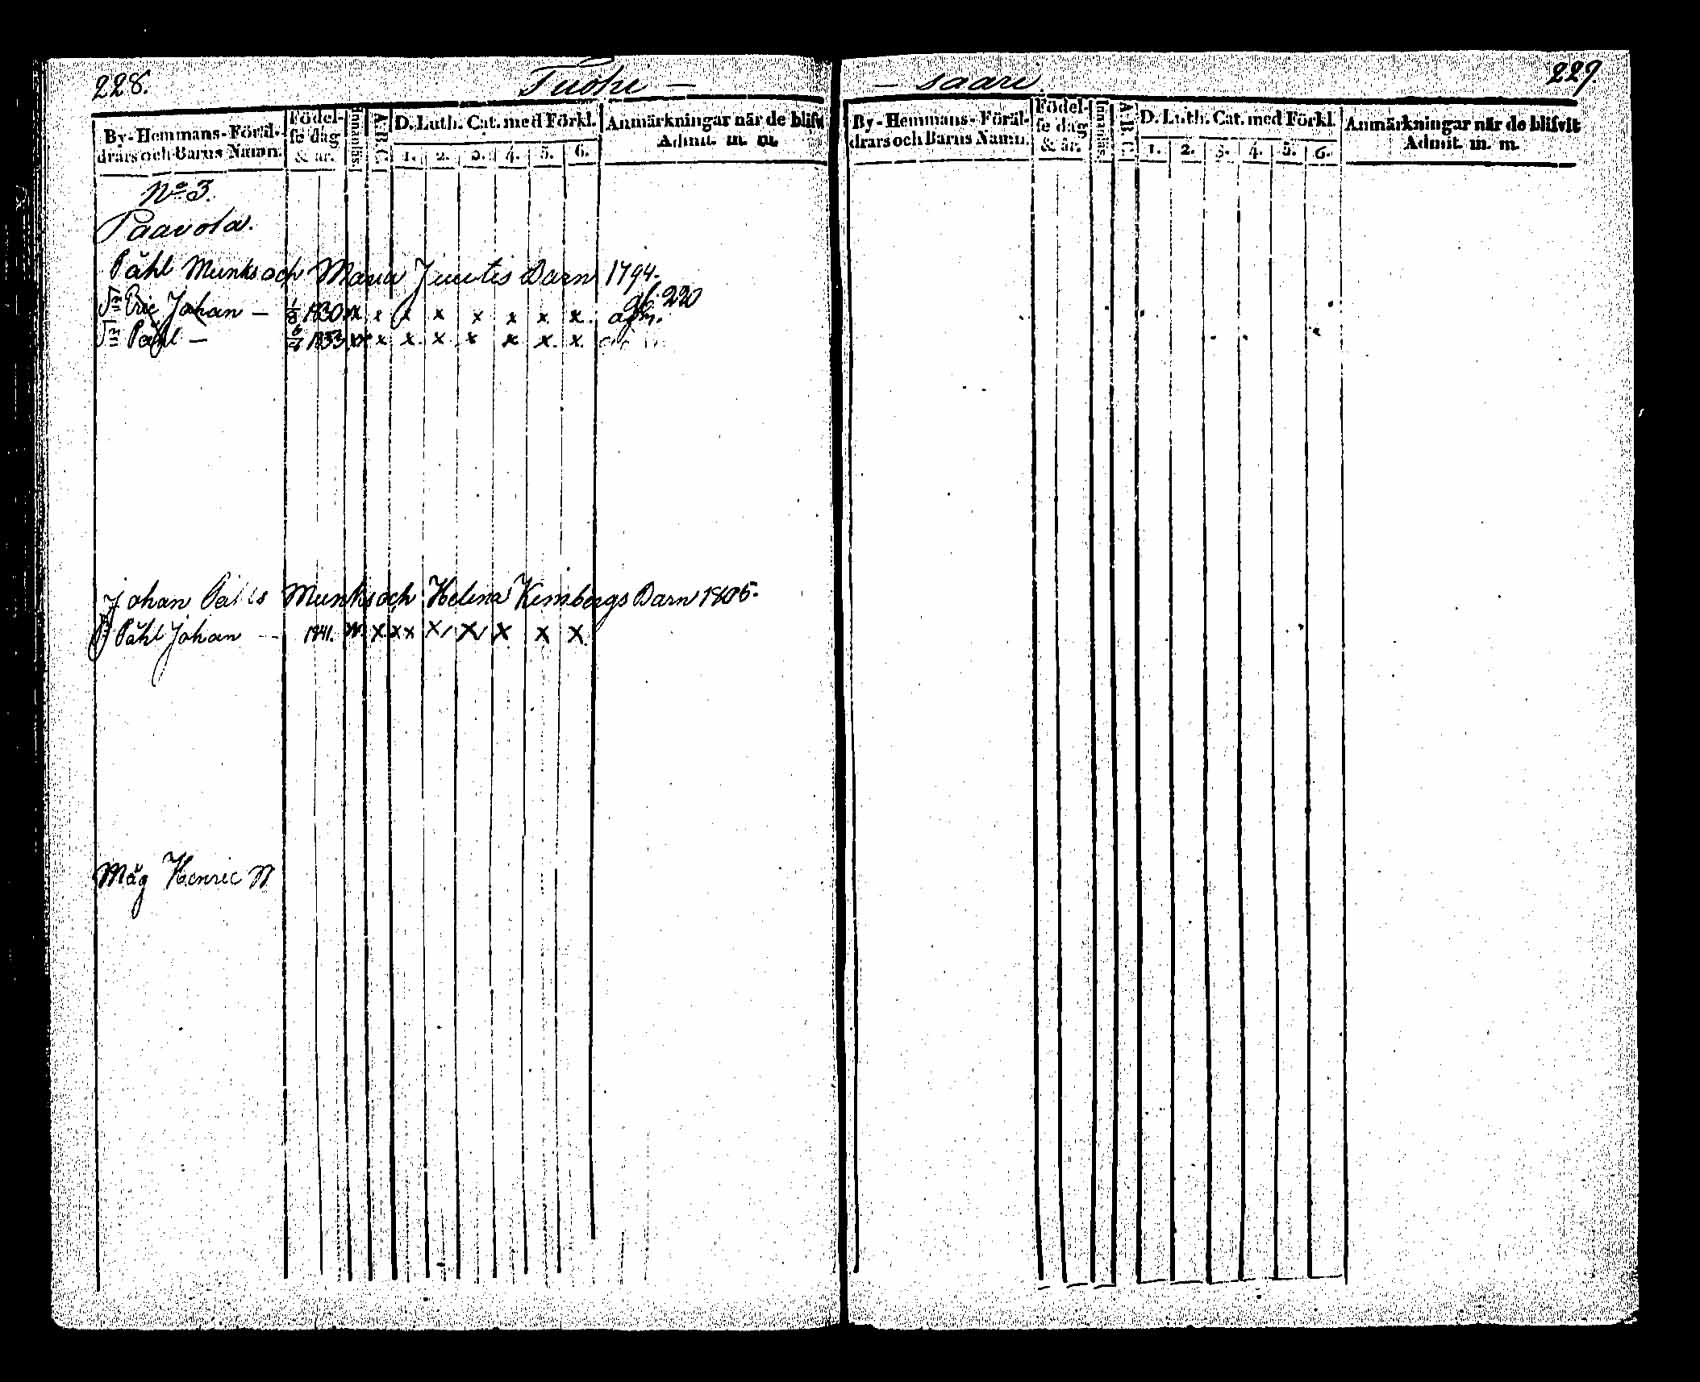 228.
Tuohi —
By-Hemmans-Föräl-
drars och Barns Namn.
Födel-
se dag
& år.
Innanläs.
A.B.C.
D. Luth. Cat. med Förkl.
1. 2. 3. 4. 5. 6.
Anmärkningar när de blifv
Admit. m. m.
No 3.
Paavola.
Påhl Munks och Maria Barn 1794.
Eric Johan — 1830 x x x x x x x x 220
Påhl — 1833 x x x x x x x x
Johan Påls Munks och Helena Kembergs Barn 1805.
Påhl Johan 1841. x x x x x x x x
Måg Henric
— saari.
229.
By-Hemmans-Föräl-
drars och Barns Namn.
Födel-
se dag
& år.
Innanläs.
A.B.C.
D. Luth. Cat. med Förkl.
1. 2. 3. 4. 5. 6.
Anmärkningar när de blifvit
Admit. m. m.